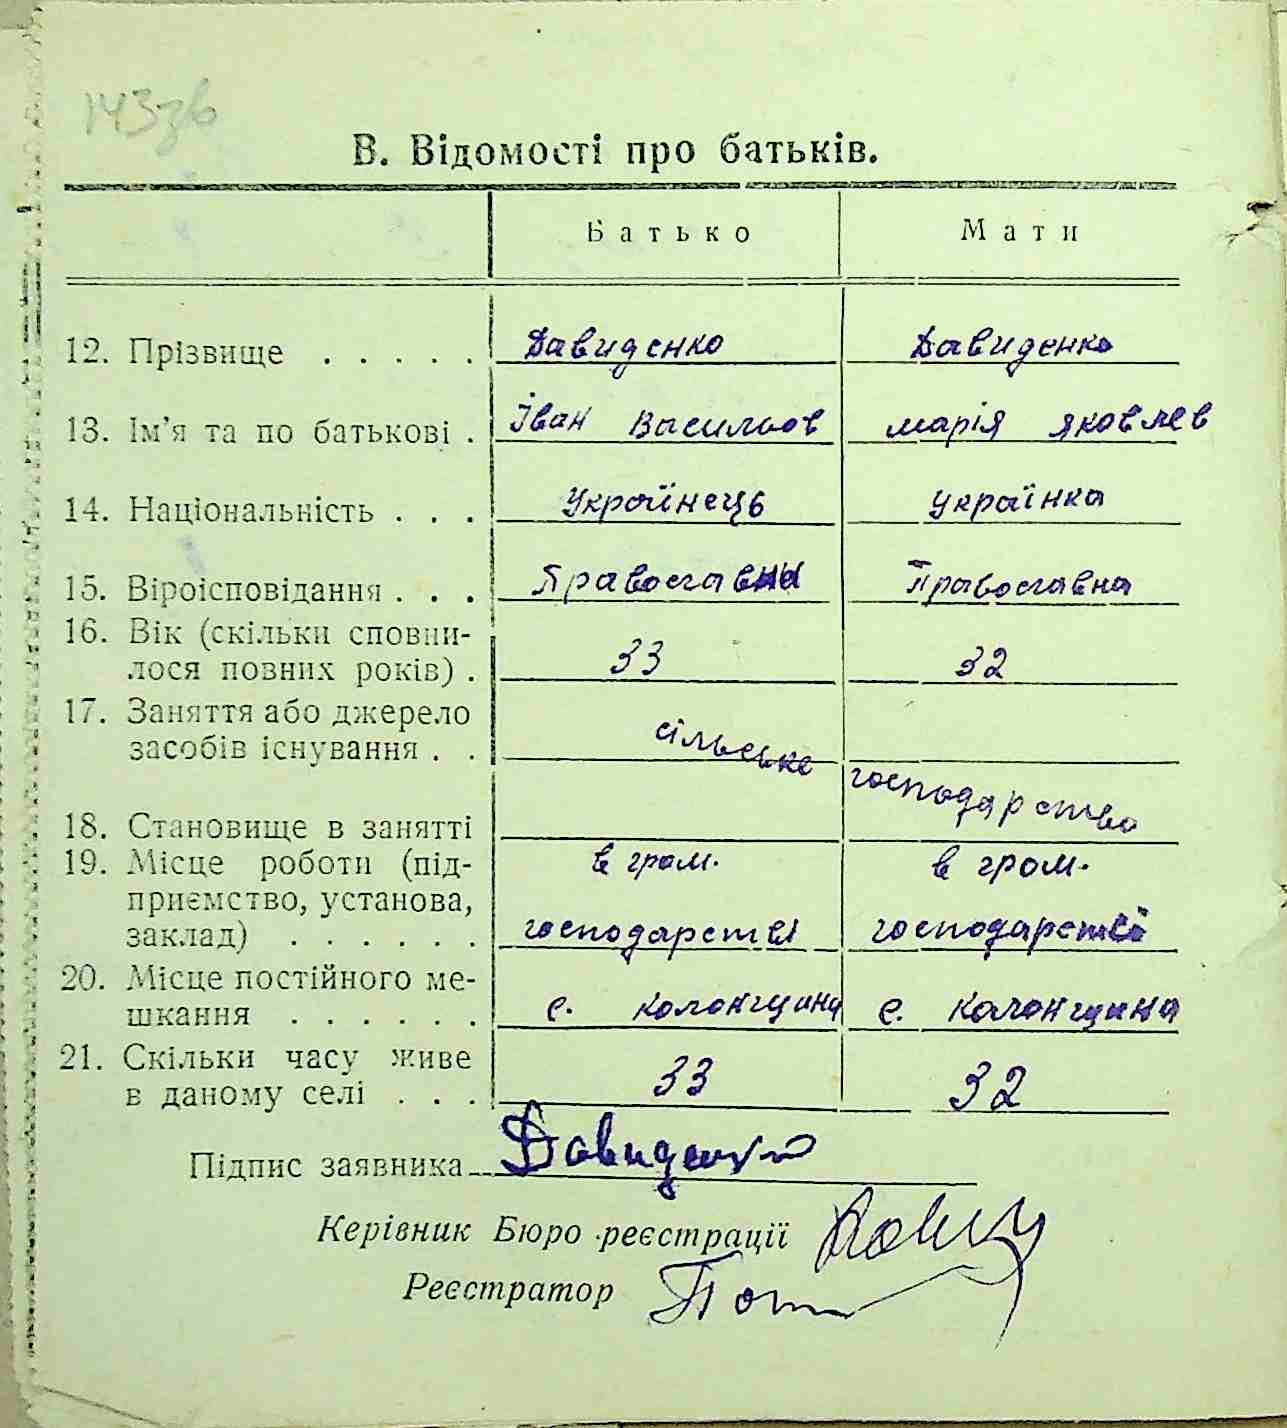 143зв
В. Відомості про батьків.
Батько Мати
12. Прізвище . . . . . Давиденко Давиденко
13. Ім'я та по батькові . Іван Васильов марія яковлев
14. Національність . . . Українець українка
15. Віроісповідання . . . Православни Православна
16. Вік (скільки сповни-
лося повних років) . 33 32
17. Заняття або джерело
засобів існування . . сільське господарство
18. Становище в занятті
19. Місце роботи (під- в гром. в гром.
приємство, установа,
заклад) . . . . . . господарстві господарстві
20. Місце постійного ме-
шкання . . . . . . с. колонщина с. колонщина
21. Скільки часу живе
в даному селі . . . 33 32
Підпис заявника Давиденко
Керівник Бюро реєстрації
Реєстратор